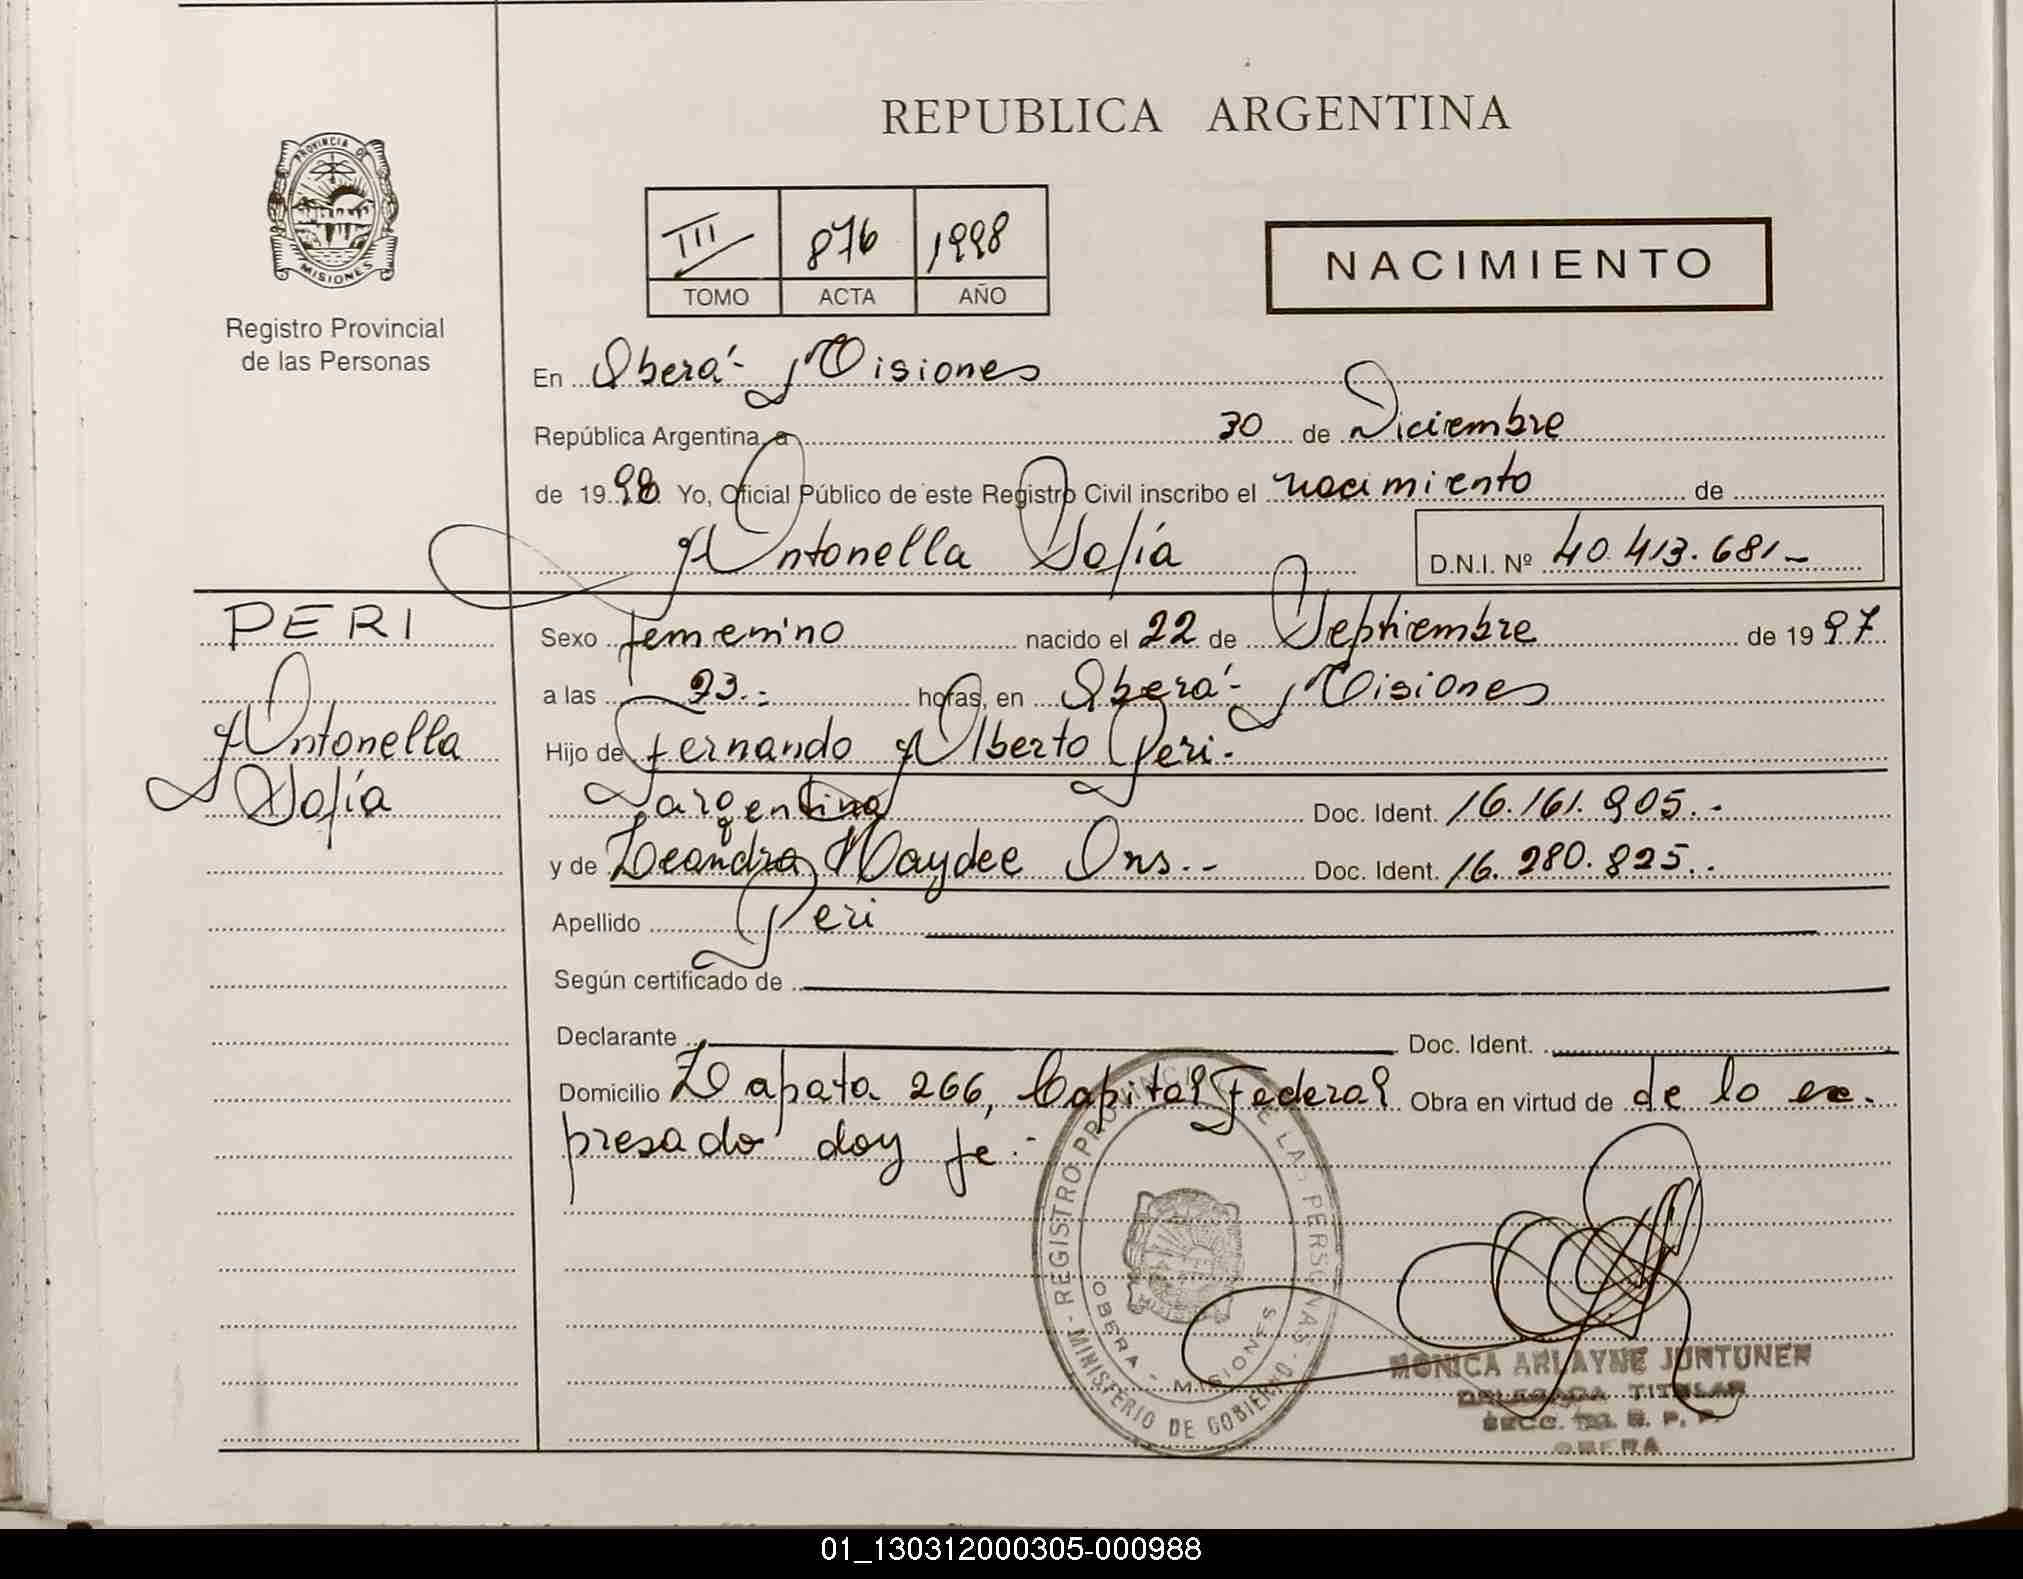 REPUBLICA ARGENTINA
PROVINCIA DE
MISIONES
Registro Provincial
de las Personas
III 876 1998
TOMO ACTA AÑO
NACIMIENTO
En Oberá - Misiones
República Argentina, a 30 de Diciembre
de 1998 Yo, Oficial Público de este Registro Civil inscribo el nacimiento de
Antonella Sofía D.N.I. Nº 40.413.681-
PERI
Antonella
Sofía
Sexo femenino nacido el 22 de Septiembre de 1997
a las 23.- horas, en Oberá - Misiones
Hijo de Fernando Alberto Peri.
argentina Doc. Ident. 16.161.905.-
y de Leandra Haydee Ons.- Doc. Ident. 16.280.825.-
Apellido Peri
Según certificado de
Declarante Doc. Ident.
Domicilio Zapata 266, Capital Federal Obra en virtud de de lo ex-
presado doy fe.-
REGISTRO PROVINCIAL DE LAS PERSONAS
OBERA - MISIONES
MINISTERIO DE GOBIERNO
MONICA ARLAYNE JUNTUNEN
DELEGADA TITULAR
SECC. R. P. P.
OBERA
01_130312000305-000988